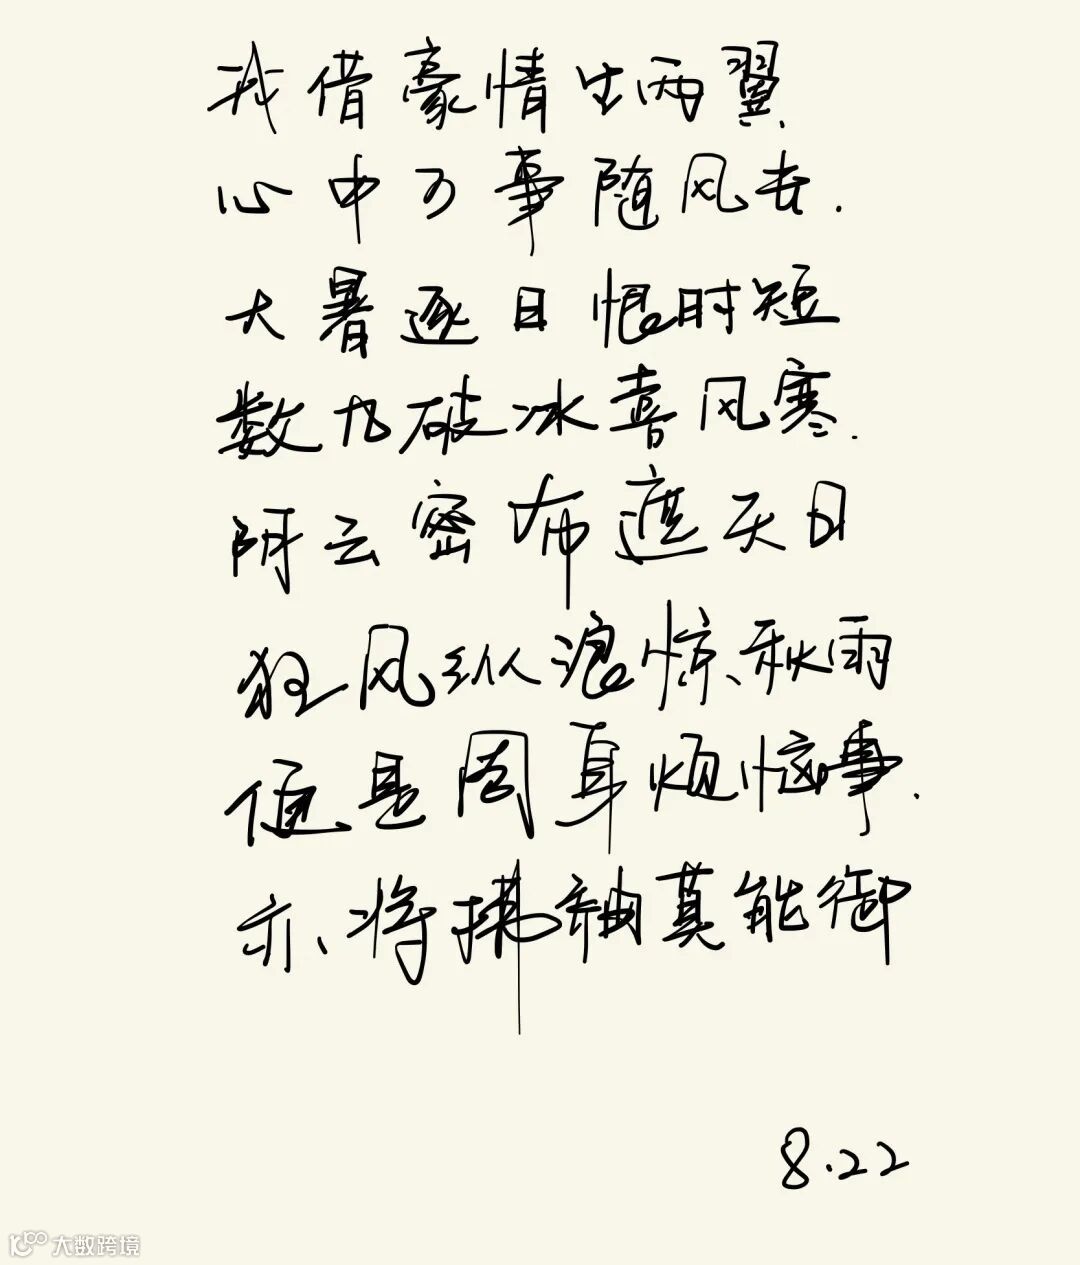 我借豪情生两翼
心中万事随风去.
大暑逐日恨时短
数九破冰喜风寒.
阴云密布遮天日
狂风纵浪惊秋雨
便是周身烦恼事.
亦将拂袖莫能御
8.22
大数跨境